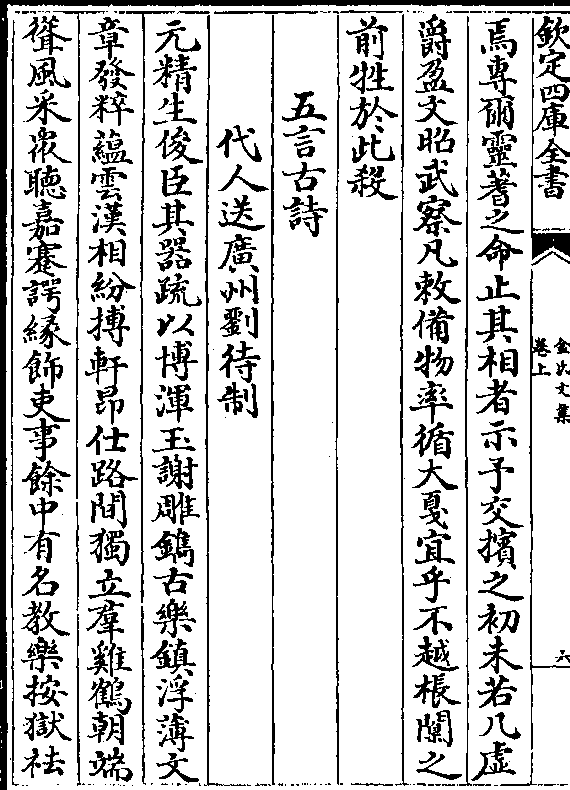 欽定四庫全書
金氏文集
卷上
六
焉專爾靈蓍之命止其相者示予交擯之初未若几虚
爵盈文昭武察凡敕備物率循大戛宜乎不越棖闑之
前牲於此殺
五言古詩
代人送廣州劉待制
元精生俊臣其器疏以博渾玉謝雕鐫古樂鎮浮薄文
章發粹藴雲漢相紛摶軒昂仕路間獨立羣雞鶴朝端
聳風采衆聽嘉蹇諤緣飾吏事餘中有名教樂按獄祛